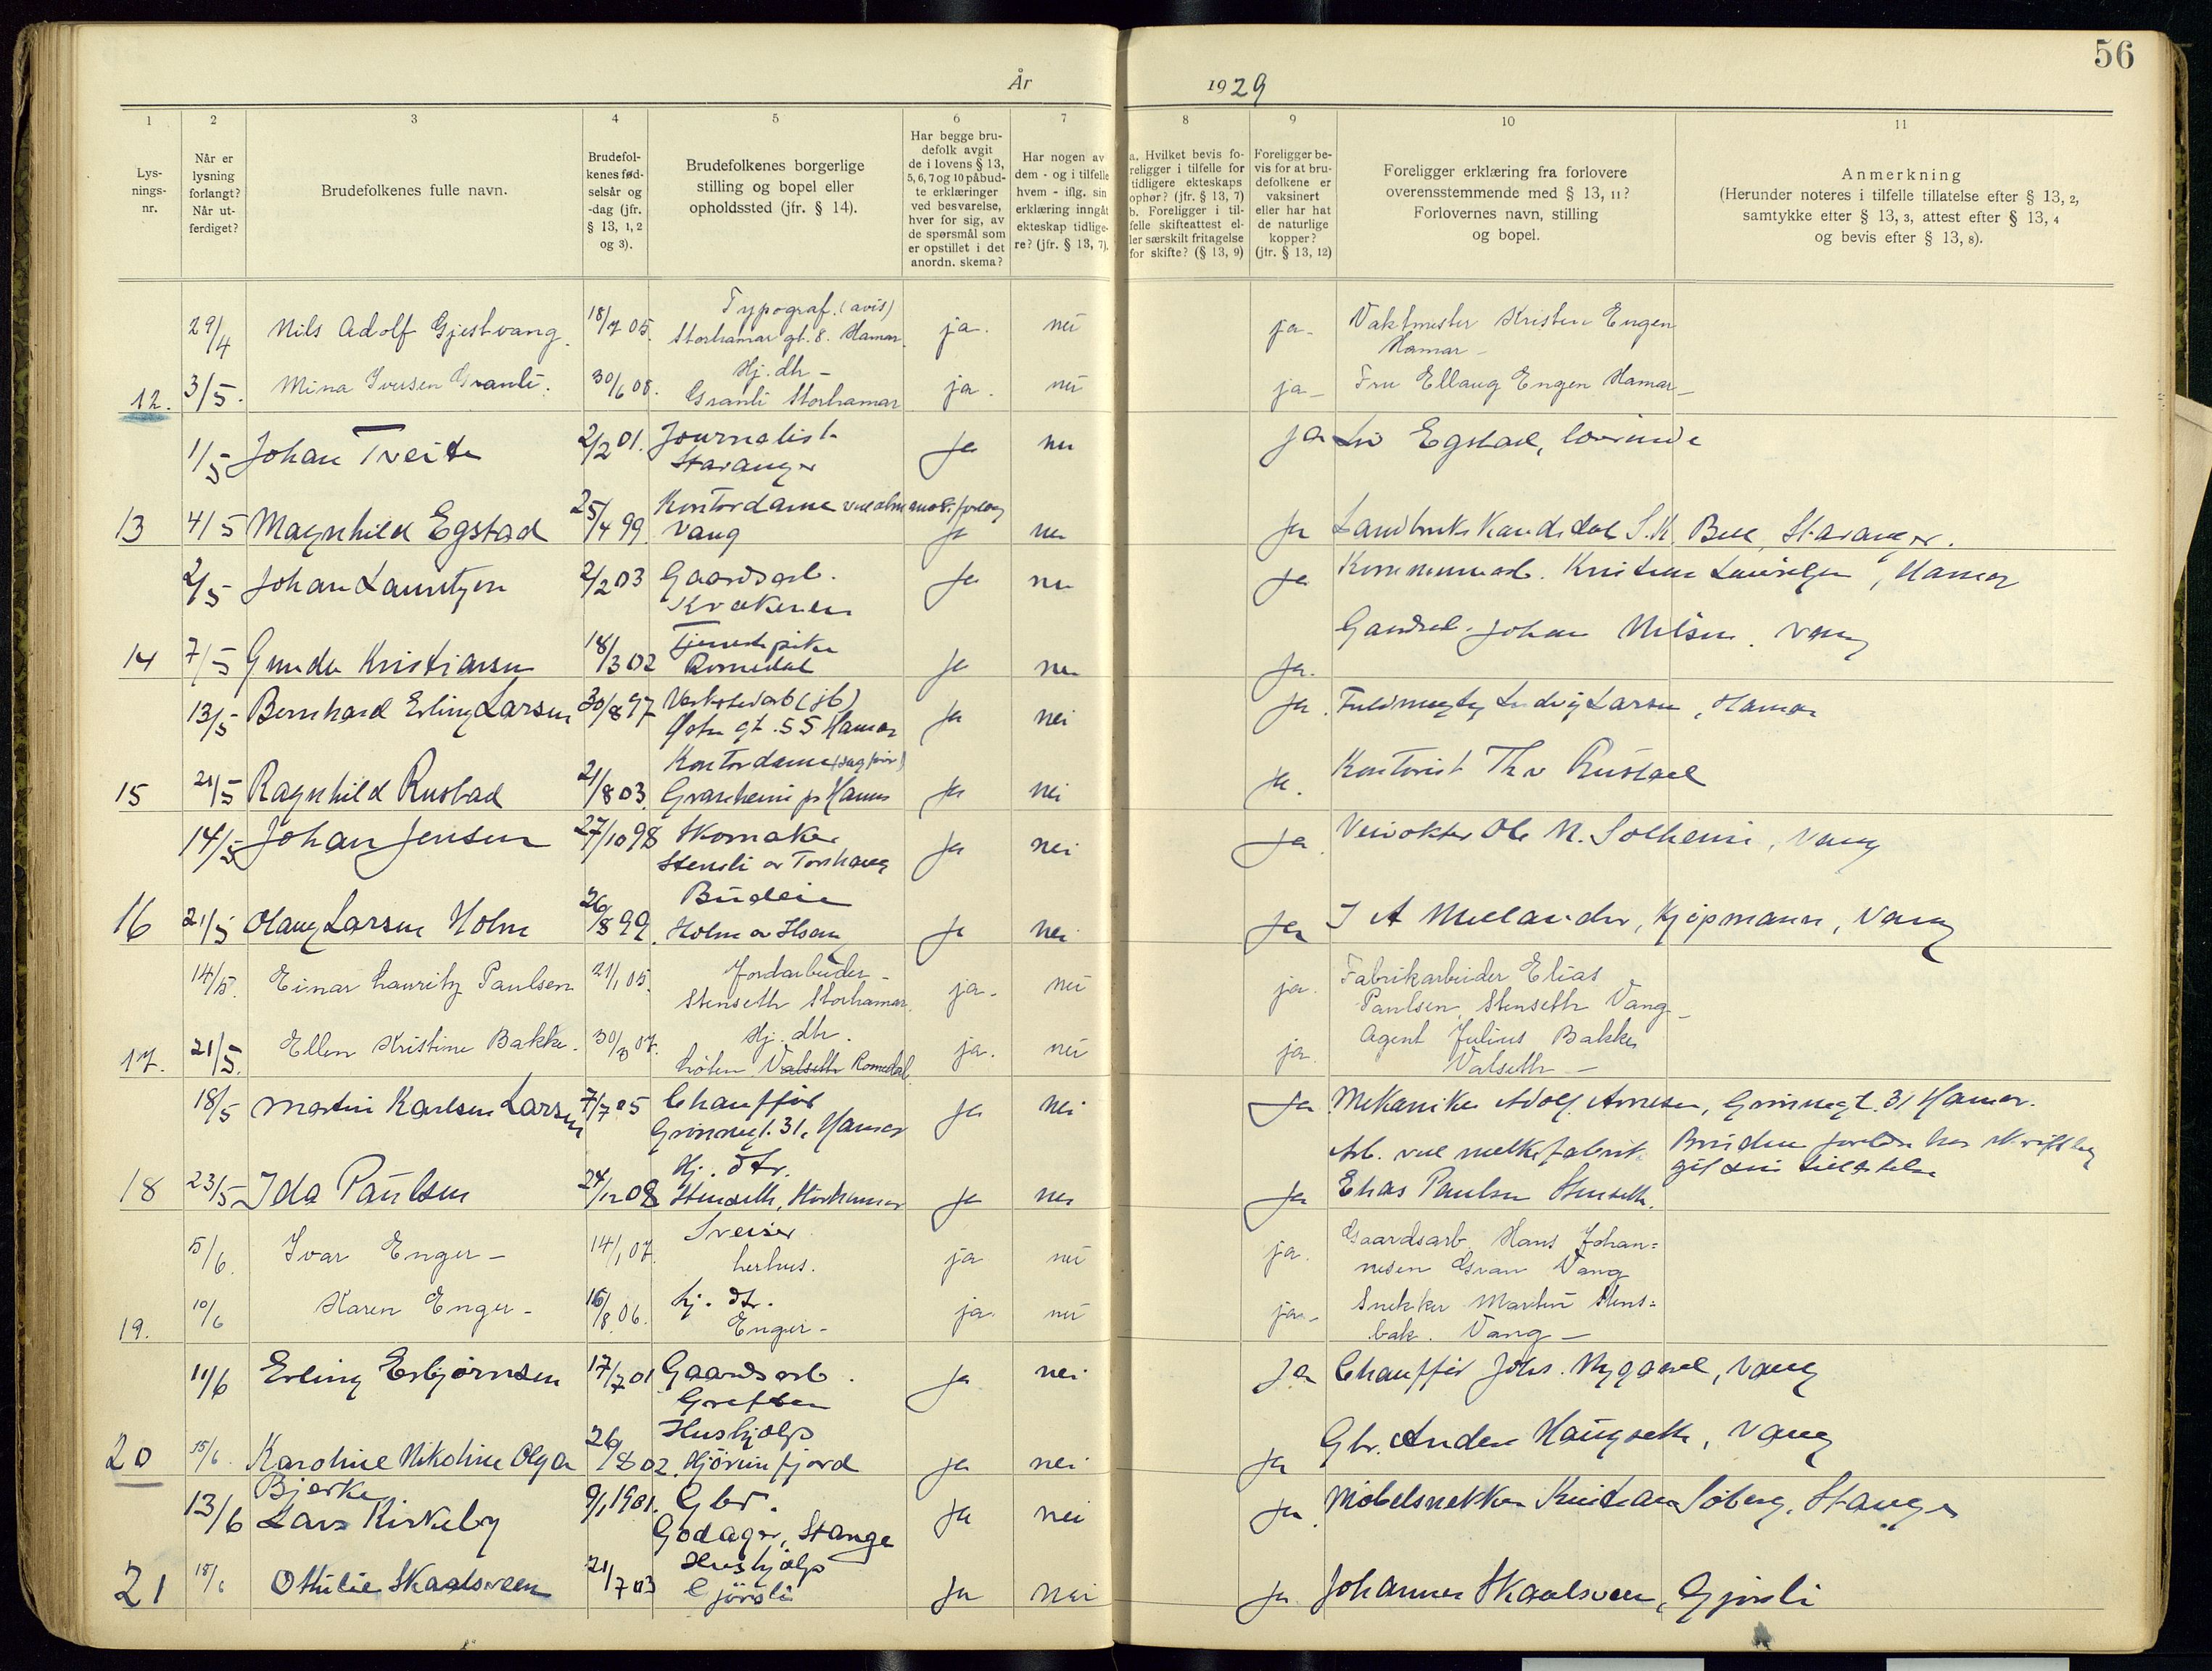 56
År 1929
1 2 3 4 5 6 7 8 9 10 11
Lys-
nings-
nr.
Når er
lysning
forlangt?
Når ut-
ferdiget?
Brudefolkenes fulle navn.
Brudefol-
kenes fød-
selsår og
-dag (jfr.
§ 13, 1, 2
og 3).
Brudefolkenes borgerlige
stilling og bopel eller
opholdssted (jfr. § 14).
Har begge bru-
defolk avgit
de i lovens § 13,
5, 6, 7 og 10 påbud-
te erklæringer
ved besvarelse,
hver for sig, av
de spørsmål som
er opstillet i det
anordn. skema?
Har nogen av
dem - og i tilfelle
hvem - iflg. sin
erklæring inngåt
ekteskap tidlige-
re? (jfr. § 13, 7).
a. Hvilket bevis fo-
religger i tilfelle for
tidligere ekteskaps
ophør? (jfr. § 13, 7)
b. Foreligger i til-
felle skifteattest el-
ler særskilt fritagelse
for skifte? (§ 13, 9)
Foreligger be-
vis for at bru-
defolkene er
vaksinert
eller har hat
de naturlige
kopper?
(jfr. § 13, 12)
Foreligger erklæring fra forlovere
overensstemmende med § 13, 11?
Forlovernes navn, stilling
og bopel.
Anmerkning
(Herunder noteres i tilfelle tillatelse efter § 13, 2,
samtykke efter § 13, 3, attest efter § 13, 4
og bevis efter § 13, 8).
29/4 Nils Adolf Gjestvang. 18/7 05. Typograf. (avis)
Storhamar gt. 8. Hamar. ja. nei ja- Vaktmester Kristen Engen
Hamar-
12. 3/5. Mina Iversen Granli. 30/6 08. Hj. dtr -
Granli Storhamar ja. nei ja- Fru Ellaug Engen Hamar-
1/5 Johan Tveite 2/2 01. Journalist
Stavanger Ja nei ja Liv Egstad, lærerinde
13 4/5 Magnhild Egstad 25/4 99. Kontordame
Vang Ja nei Ja Landbrukskandidat S. K. Stavanger.
2/5 Johan Lauritzen 2/2 03 Gaardsarb.
Ja nei Ja Kommunearb. Kristian Lauritzen, Hamar
14 7/5 Gunda Kristiansen 18/3 02 Tjenestepike
Romedal Ja nei Ja. Gaardsb. Johan Nilsen. Vang
13/5 Bernhard Erling Larsen 30/8 97 Verkstedarb (jb)
gt. 55 Hamar Ja nei Ja. Fuldmegtig Ludvig Larsen, Hamar
15 21/5 Ragnhild Rustad 21/8 03. Kontordame (sagfør)
pr Hamar Ja nei Ja. Kontorist Thv Rustad
14/5 Johan Jensen 27/10 98 Skomaker
Stensli av Torshaug Ja nei Ja. Veivokter Ole N. Solheim, Vang
16 21/5 Olaug Larsen Holm 26/8 99. Budeie
Holm av Ja nei Ja J A Melander, Kjøpmann, Vang
14/5. Einar Lauritz Paulsen 21/1 05. Jordarbeider -
Stenseth Storhamar. ja- nei ja. Fabrikarbeider Elias
Paulsen, Stenseth Vang-
17. 21/5. Ellen Kristine Bakke. 30/3 07. Hj. dtr.
Løten Valseth Romedal. ja. nei ja. Agent Julius Bakke
Valseth -
18/5 Martin Karlsen Larsen 7/7 05 Chauffør
Grønnegt. 31, Hamar Ja nei Ja Mekaniker Adolf Arnesen, Grønnegt. 31 Hamar.
18 23/5 Ida Paulsen 24/12 08 Hj. dtr.
Stenseth, Storhamar Ja nei Ja Arb. ved melkefabrik
Elias Paulsen Stenseth. Brudens foreldre har skriftlig
git sin tillatelse
5/6. Ivar Enger - 14/1 07. Sveiser
ja nei ja. Gaardsarb Hans Johan=
nesen Gran Vang
19. 10/6 Karen Enger - 16/8 06. hj. dtr.
Enger - ja nei ja- Snekker Martin Stens=
bak. Vang -
11/6 Erling Esbjørnsen 17/7 01 Gaardsarb.
Grefsen Ja nei Ja Chauffør Johs. Nygaard, Vang
20 15/6. Karoline Nikoline Olga
Bjerke 26/8 02. Hushjælp
Hjørundfjord ja nei Ja Gbr. Anders Haugseth, Vang
13/6 Lars Kirkeby 9/1 1901. Gbr.
Godager, Stange Ja nei Ja. Møbelsnekker Kristian Søberg, Stange
21 18/6 Othilie Skaalsveen 21/7 03 Hushjælp
Gjørsli Ja nei Ja Johannes Skaalsveen, Gjørsli